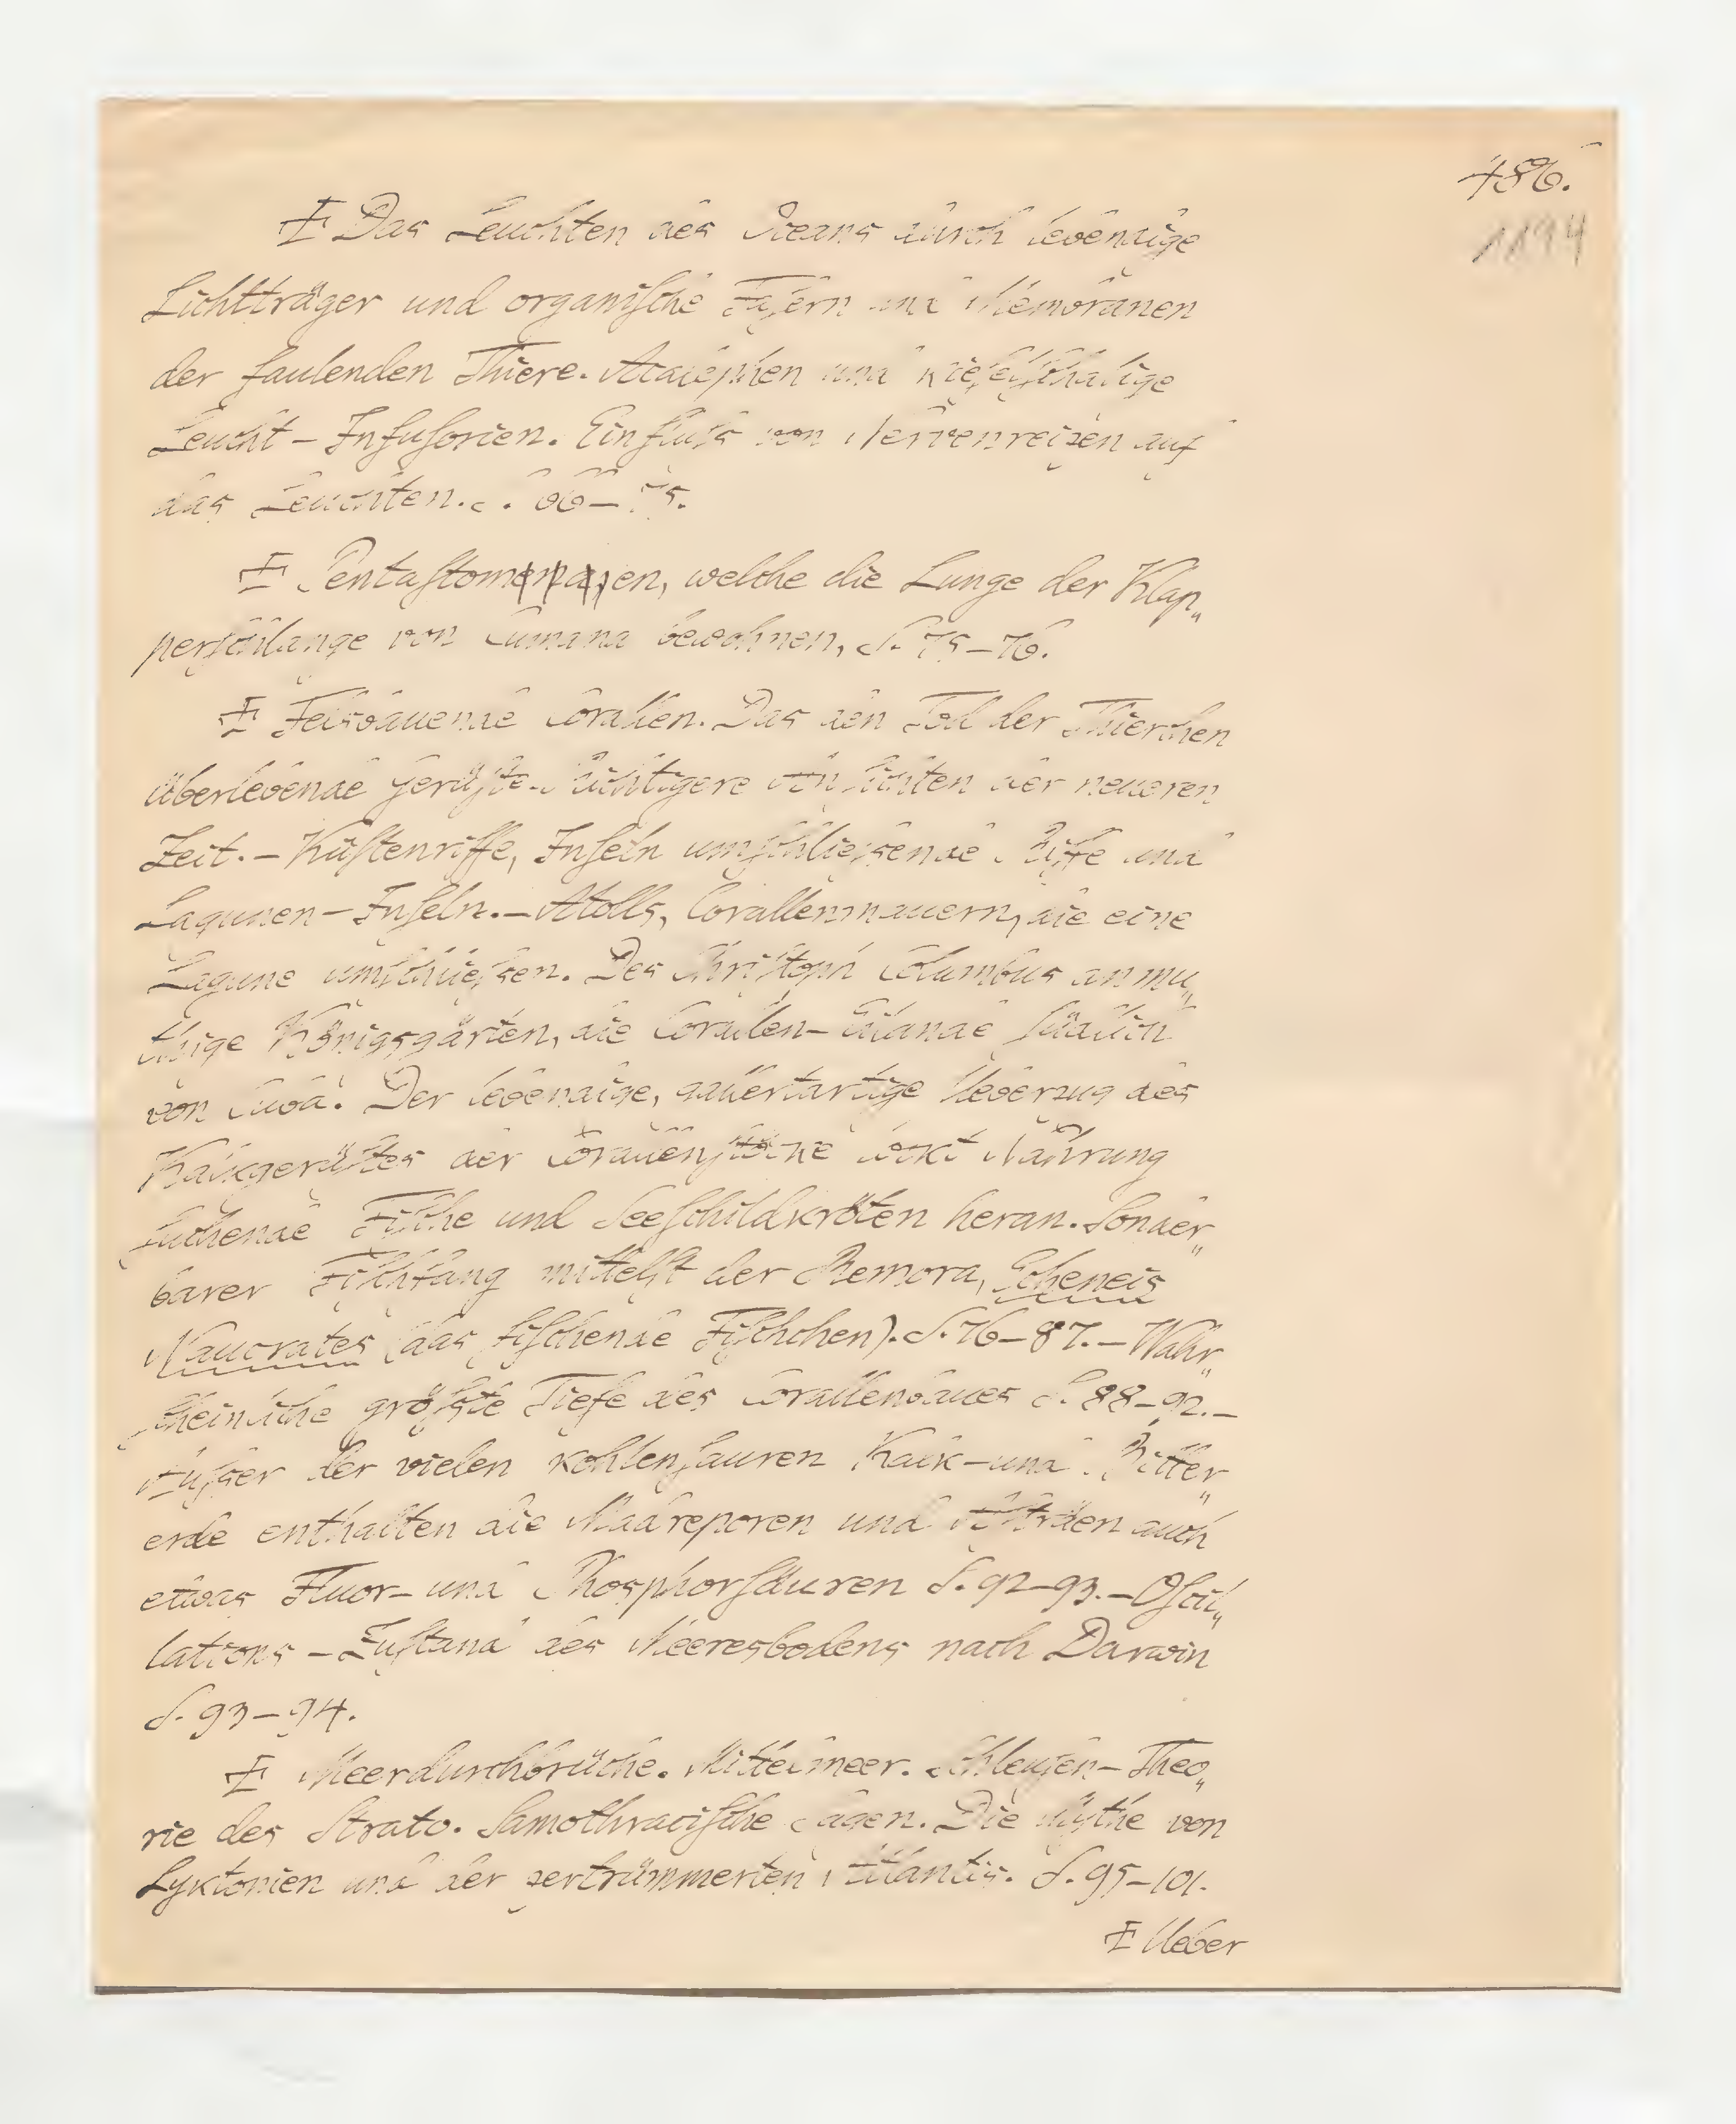 486.
1194
Das Leuchten des Oceans durch lebendige
Lichtträger und organische Fasern und Membranen
der faulenden Thiere. Acalephen und kieselschalige
Leucht-Infusorien. Einfluss von Nervenreizen auf
das Leuchten. S. 66–75.
Pentastomen, welche die Lunge der Klap„
perschlange von Cumana bewohnen, S. 75–76.
Felsbauende Corallen. Das den Tod der Thierchen
überlebende Gerüste. Richtigere Ansichten der neueren
Zeit. – Küstenriffe, Inseln umschliessende Riffe und
Lagunen-Inseln. – Atolls, Corallenmauern, die eine
Lagune umschliessen. Des Christoph Columbus anmu„
thige Königsgärten, die Corallen-Eilande südlich
von Cuba. Der lebendige, gallertartige Ueberzug des
Kalkgerüstes der Corallenstöcke lockt Nahrung
suchende Fische und Seeschildkröten heran. Sonder„
barer Fischfang mittelst der Remora, Echeneis
Naucrates (das fischende Fischchen). S. 76–87. – Wahr„
scheinliche grösste Tiefe des Corallenbaues S. 88–92. –
Ausser der vielen kohlensauren Kalk- und Bitter„
erde enthalten die Madreporen und Asträen auch
etwas Fluor- und Phosphorsäuren S. 92–93. – Oscil„
lations-Zustand des Meeresbodens nach Darwin
S. 93–94.
Meerdurchbrüche. Mittelmeer. Schleusen-Theo„
rie des Strato. Samothracische Sagen. Die Mythe von
Lyktonien und der zertrümmerten Atlantis. S. 95–101.
Ueber